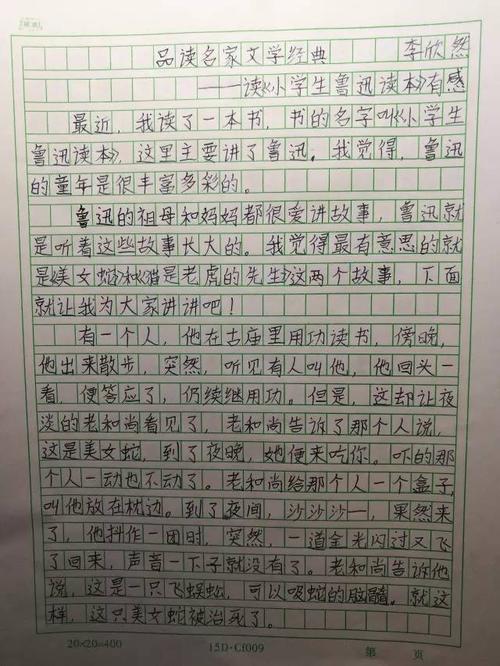 品读名家文学经典 李欣然
——读《小学生鲁迅读本》有感
最近，我读了一本书，书的名字叫《小学生
鲁迅读本》，这里主要讲了鲁迅。我觉得，鲁迅
的童年是很丰富多彩的。
鲁迅的祖母和妈妈都很爱讲故事，鲁迅就
是听着这些故事长大的。我觉得最有意思的就
是《美女蛇》和《猫是老虎的先生》这两个故事，下面
就让我为大家讲讲吧！
有一个人，他在古庙里用功读书，傍晚，
他出来散步，突然，听见有人叫他，他回头一
看，便答应了，仍续继用功。但是，这却让夜
淡的老和尚看见了，老和尚告诉了那个人说，
这是美女蛇，到了夜晚，她便来吃你。吓的那
个人一动也不动了。老和尚给那个人一个盒子，
叫他放在枕边。到了夜间，沙沙沙—，果然来
了，他抖作一团时，突然，一道金光闪过又飞
了回来，声音一下子就没有了。老和尚告诉他
说，这是一只飞蜈蚣，可以吸蛇的脑髓。就这
样，这只美女蛇被治死了。
20×20=400 15D·Cf009 第 页